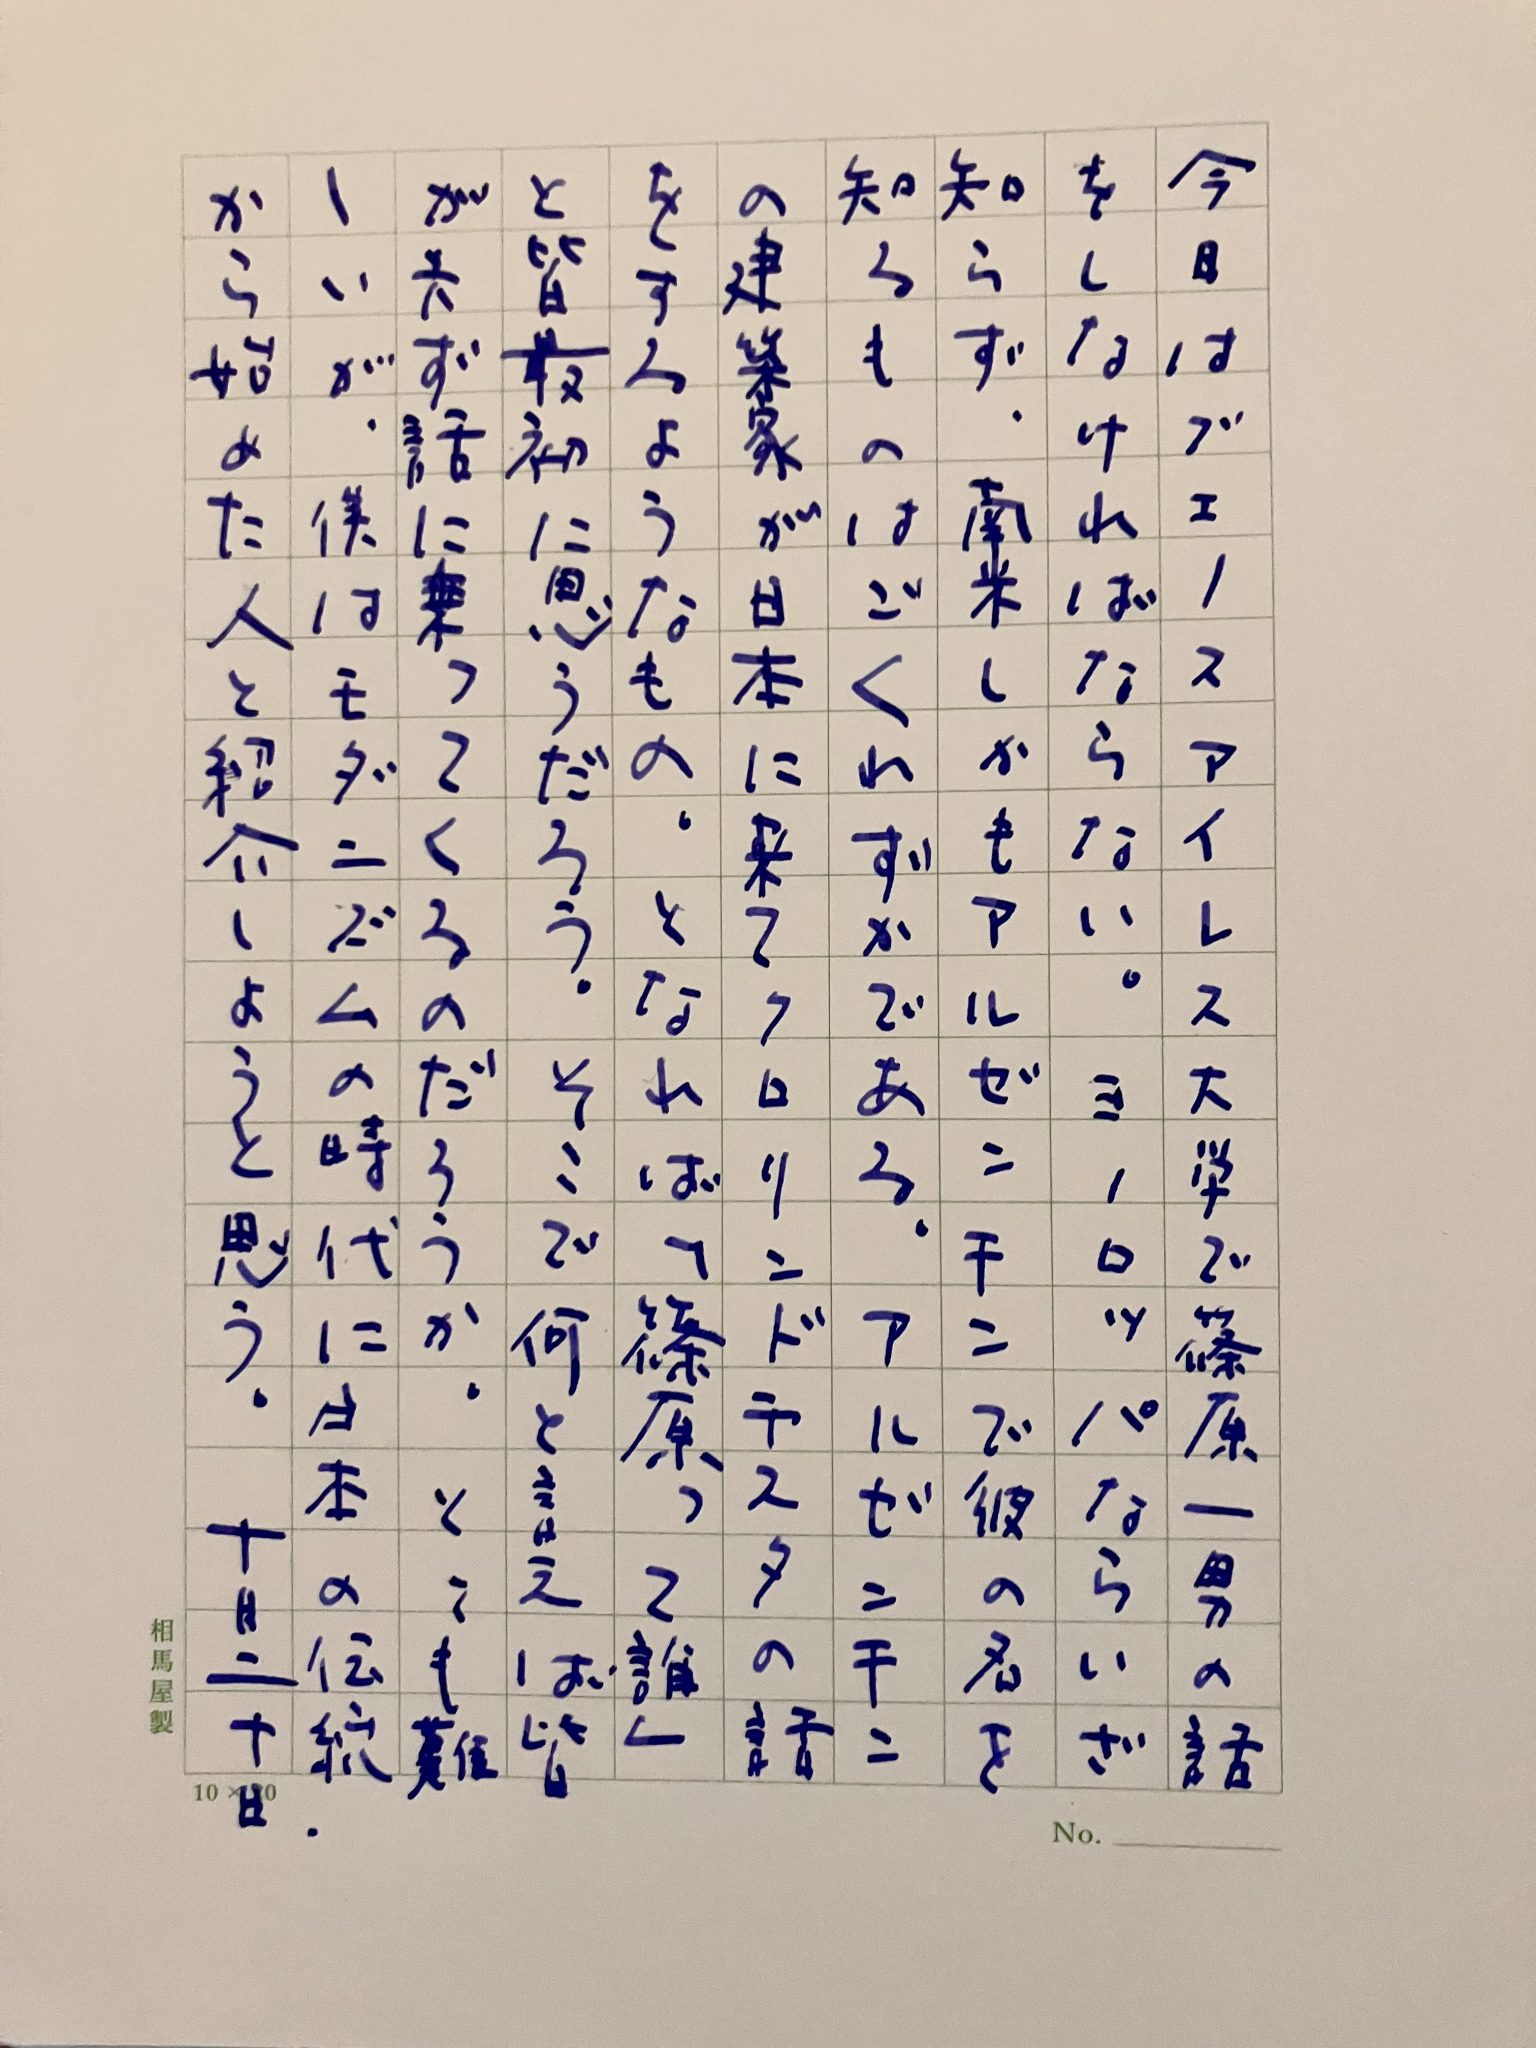 今日はブエノスアイレス大学で篠原一男の話
をしなければならない。ヨーロッパならいざ
知らず、南米しかもアルゼンチンで彼の名を
知るものはごくわずかである。アルゼンチン
の建築家が日本に来てクロリンドテスタの話
をするようなもの。となれば「篠原って誰」
と皆最初に思うだろう。そこで何と言えば皆
が六ず話に乗ってくるのだろうか。とても難
しいが、僕はモダニズムの時代に日本の伝統
から始めた人と紹介しようと思う。十月二十日.
相馬屋製
10 × 20
No.